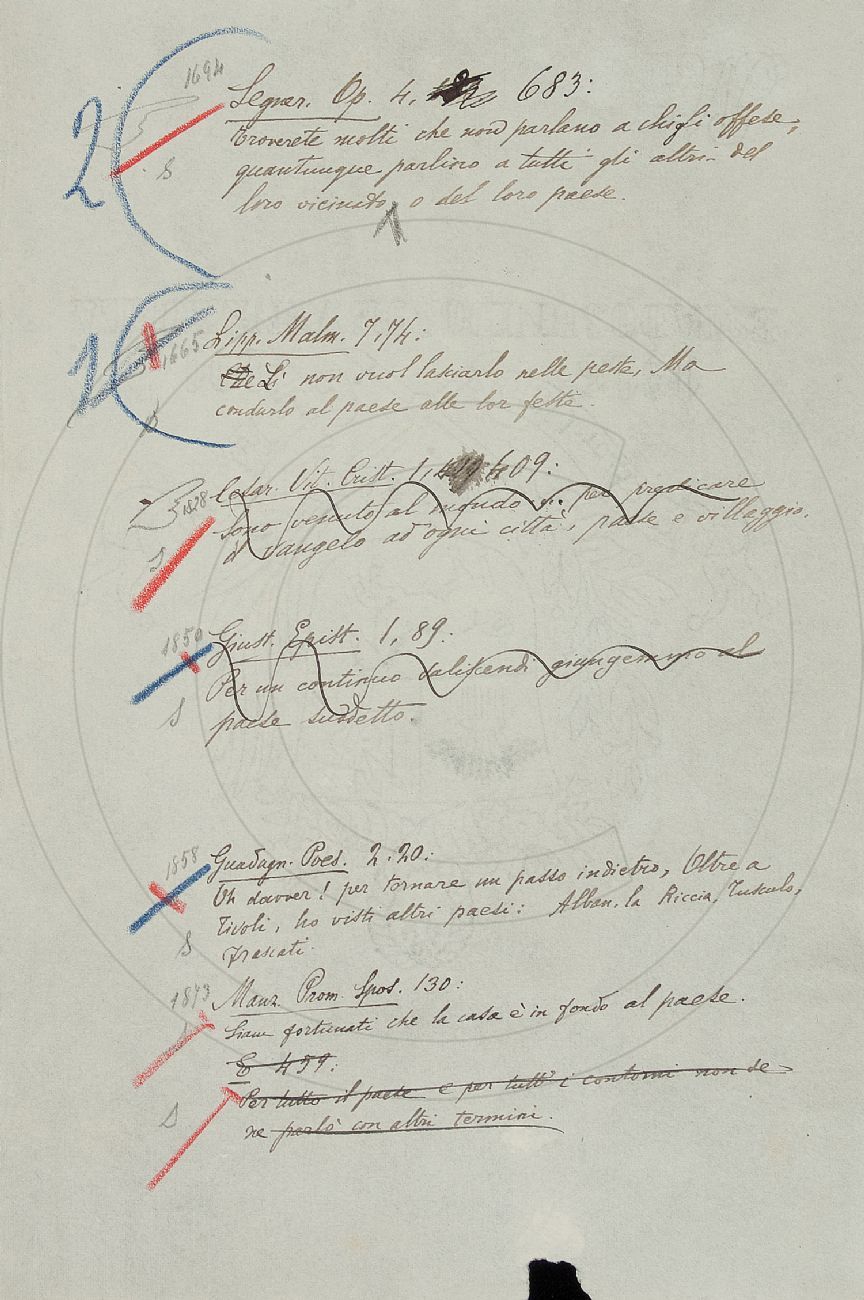 2
1694
Segner. Op. 4, 683:
troverete molti che non parlano a chi gli offese,
quantunque parlino a tutti gli altri del
S
loro vicinato, o del loro paese.
1
1
1665
Lipp. Malm. 7.74:
Che Li non vuol lasciarlo nelle peste, Ma
condurlo al paese alle lor feste.
Cesar. Vit. Crist. 1, 409:
1828
Sono venuto al mondo ... per predicare
il Vangelo ad ogni città, paese e villaggio.
S
1850
Giust. Epist. 1, 89:
Per un continuo saliscendi giungemmo al
S
paese suddetto.
1858
Guadagn. Poes. 2.20:
Oh davver! per tornare un passo indietro, Oltre a
Tivoli, ho visti altri paesi: Alban, la Riccia, Tusculo,
S
Frascati.
1873
Manz. Prom. Spos. 130:
Siam fortunati che la casa è in fondo al paese.
E 459:
Per tutto il paese e per tutt' i contorni non se
S
ne parlò con altri termini.